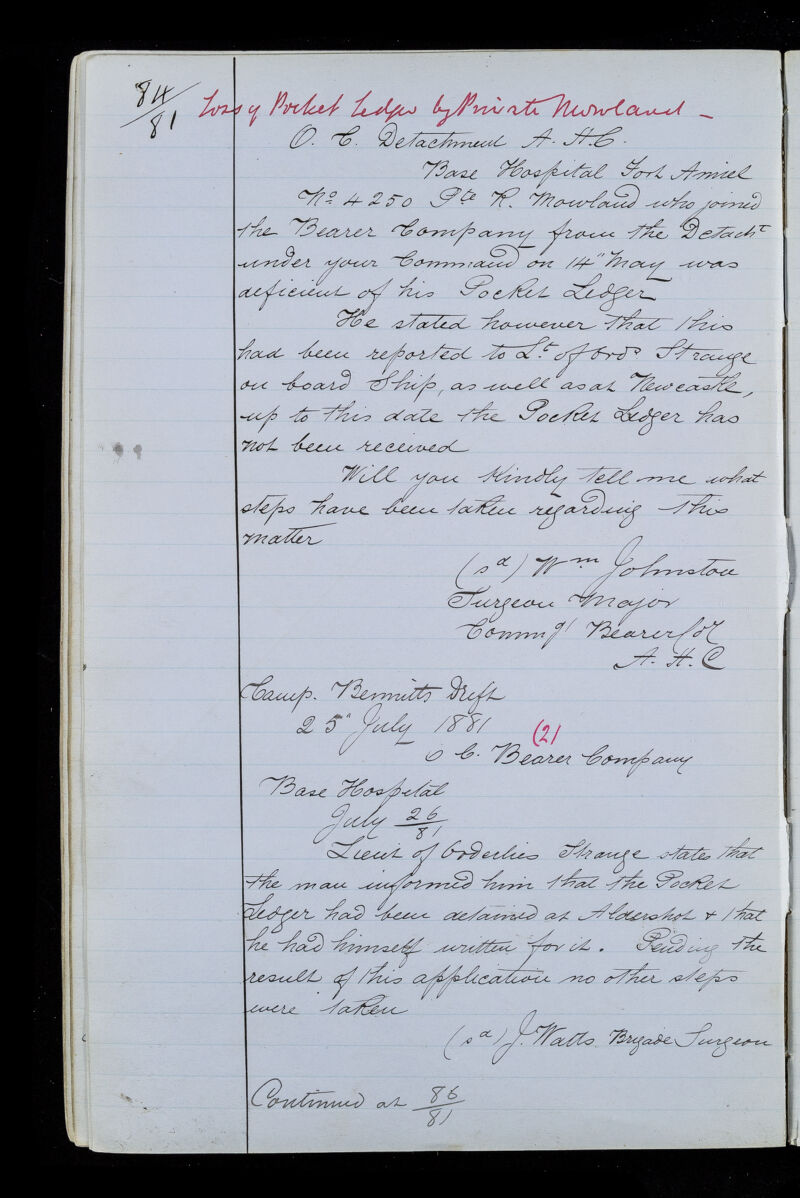 84/81
Loss of Pocket Ledger by Private Mowland -
O. C. Detachment A. H. C.
Base Hospital Fort Amiel
No 4250 Pte R. Mowland who joined
the Bearer Company from the Detacht
under your Command on 14" May was
deficient of his Pocket Ledger
He stated however that this
had been reported to Lt of Ords Strange
on board Ship, as well as at Newcastle,
up to this date the Pocket Ledger has
not been received
Will you Kindly tell me what
steps have been taken regarding this
matter
(sd) Wm Johnston
Surgeon Major
Commg Bearer Coy
A. H. C
Camp. Bennitts Drift
25" July 1881
(2)
O C. Bearer Company
Base Hospital
July 26/81
Lieut of Orderlies Strange states that
the man informed him that the Pocket
Ledger had been detained at Aldershot & that
he had himself written for it. Pending the
result of this application no other steps
were taken
(sd) J. Watts Brigade Surgeon
Continued at 86/81